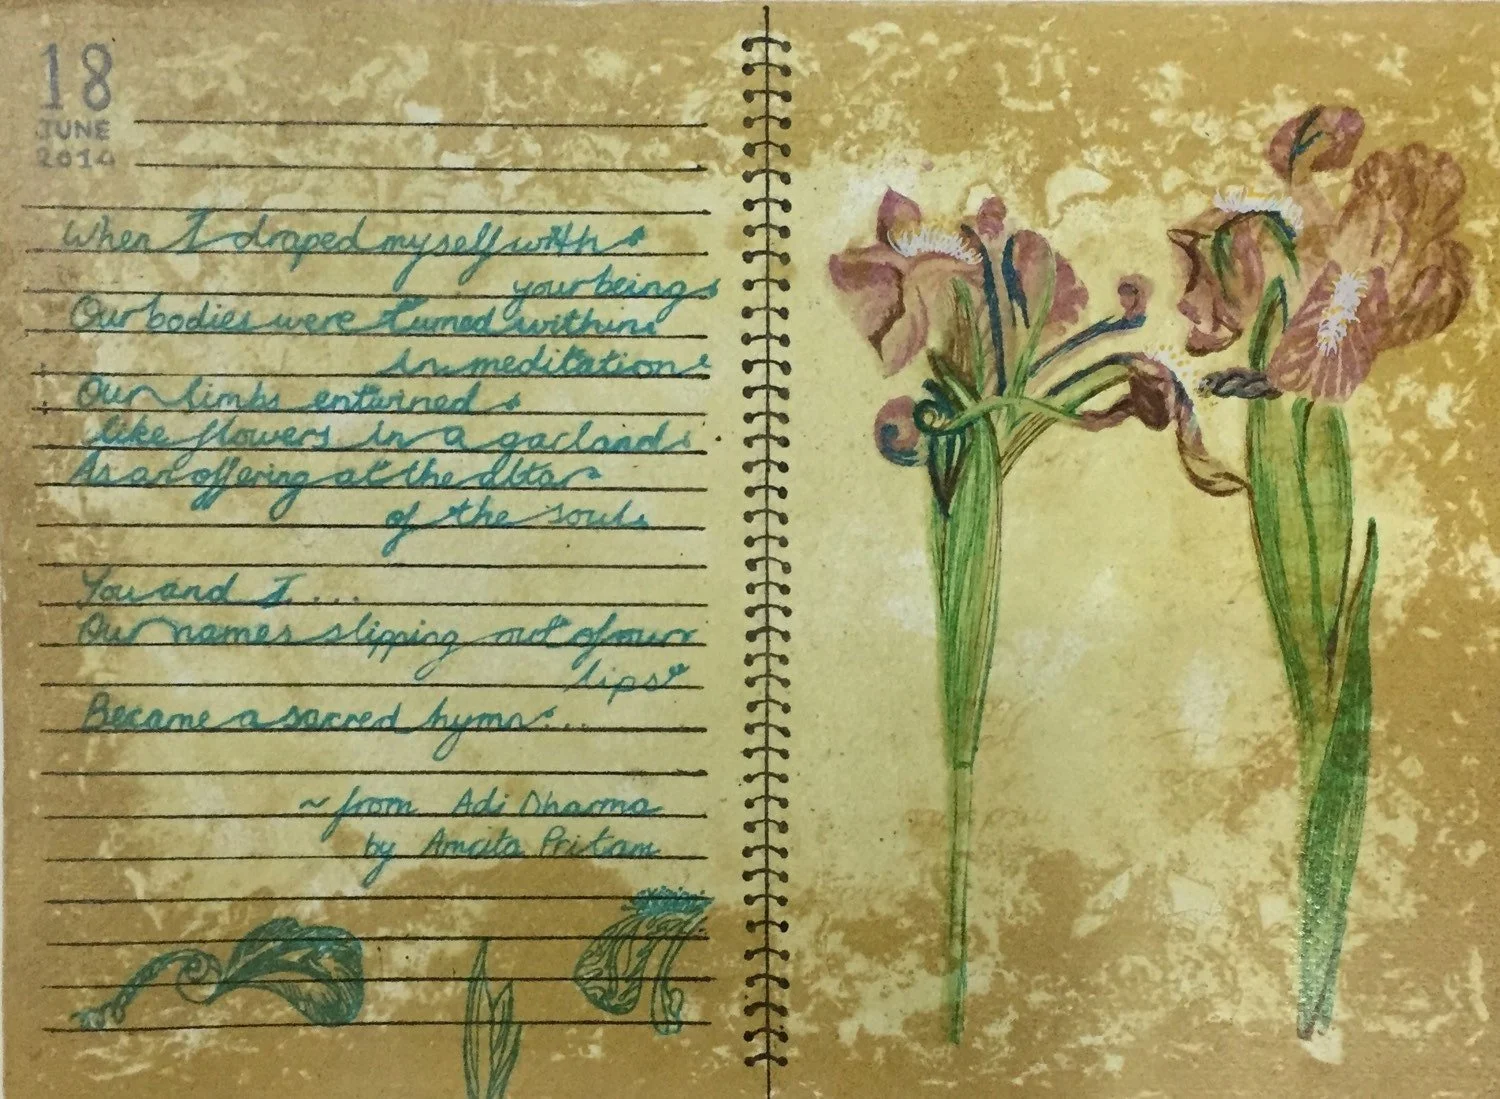 18
JUNE
2014
When I draped myself with
your being
Our bodies were turned within
in meditation
Our limbs entwined
like flowers in a garland
As an offering at the altar
of the soul
You and I ...
Our names slipping out of our
lips
Became a sacred hymn ...
~ from Adi Dharma
by Amrita Pritam